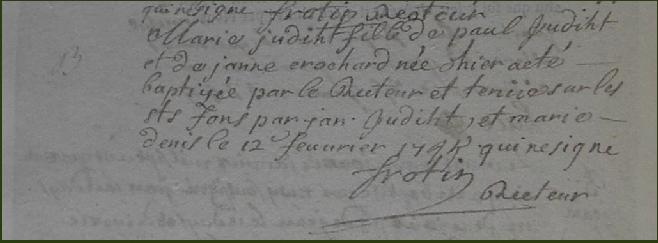 qui ne signe frotin Recteur
Marie judiht fille de paul Judiht
et de janne crochard née hier a eté
baptizée par le Recteur et tenüe sur les
sts fons par jan Judiht, et marie
denis le 12e feuurier qui ne signe
frotin
Recteur